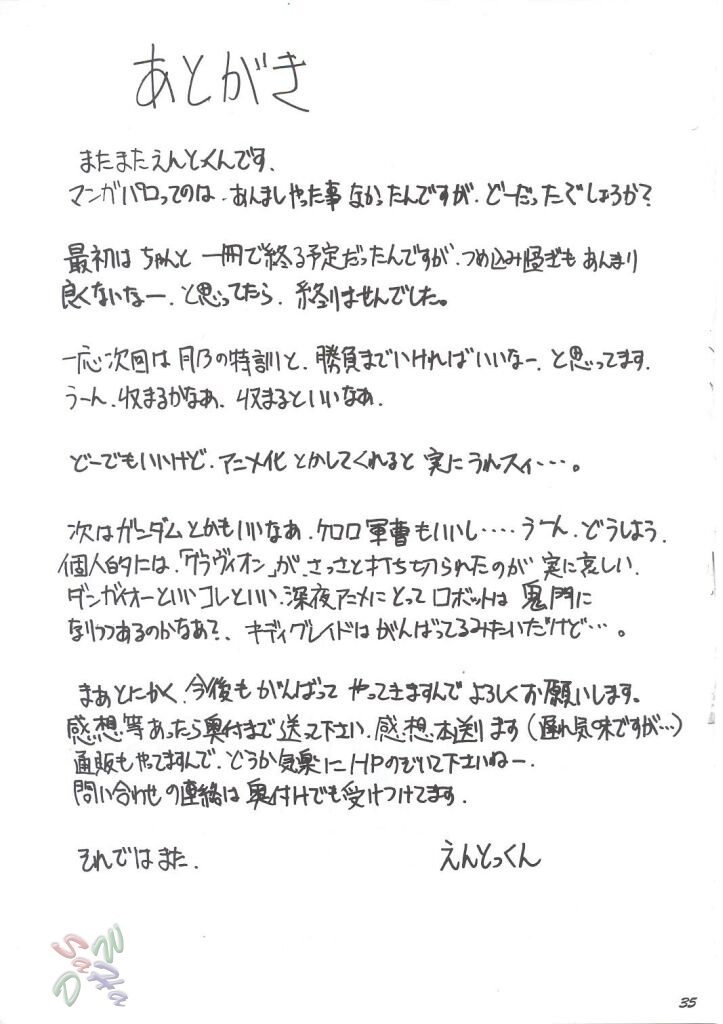 あとがき
またまたえんとくんです.
マンガパロってのは.あんましやった事なかったんですが.どーだったでしょうか?
最初はちゃんと一冊で終る予定だったんですが.つめ込み過ぎもあんまり
良くないなー.と思ってたら.終りませんでした。
一応次回は月乃の特訓と.勝負までいければいいなー.と思ってます.
うーん.収まるかなぁ、収まるといいなぁ.
どーでもいいけど.アニメ化とかしてくれると実にうれスィ・・・。
次はガンダムとかもいいなあ.ケロロ軍曹もいいし・・・・うーん.どうしよう.
個人的には.「グラヴィオン」が.さっさと打ち切られたのが実に哀しい.
ダンガイオーといいコレといい.深夜アニメにとってロボットは鬼門に
なりつつあるのかなあ?、キディグレイドはがんばってるみたいだけど・・・。
まあとにかく.今後もがんばってやってきますんでよろしくお願いします。
感想等あったら奥付まで送って下さい.感想本送ります(遅れ気味ですが…)
通販もやってますんで.どうか気楽にHPのぞいて下さいねー.
問い合わせの連絡は奥付けでも受けつけてます.
それではまた.
えんとっくん
SaW
DHa
35